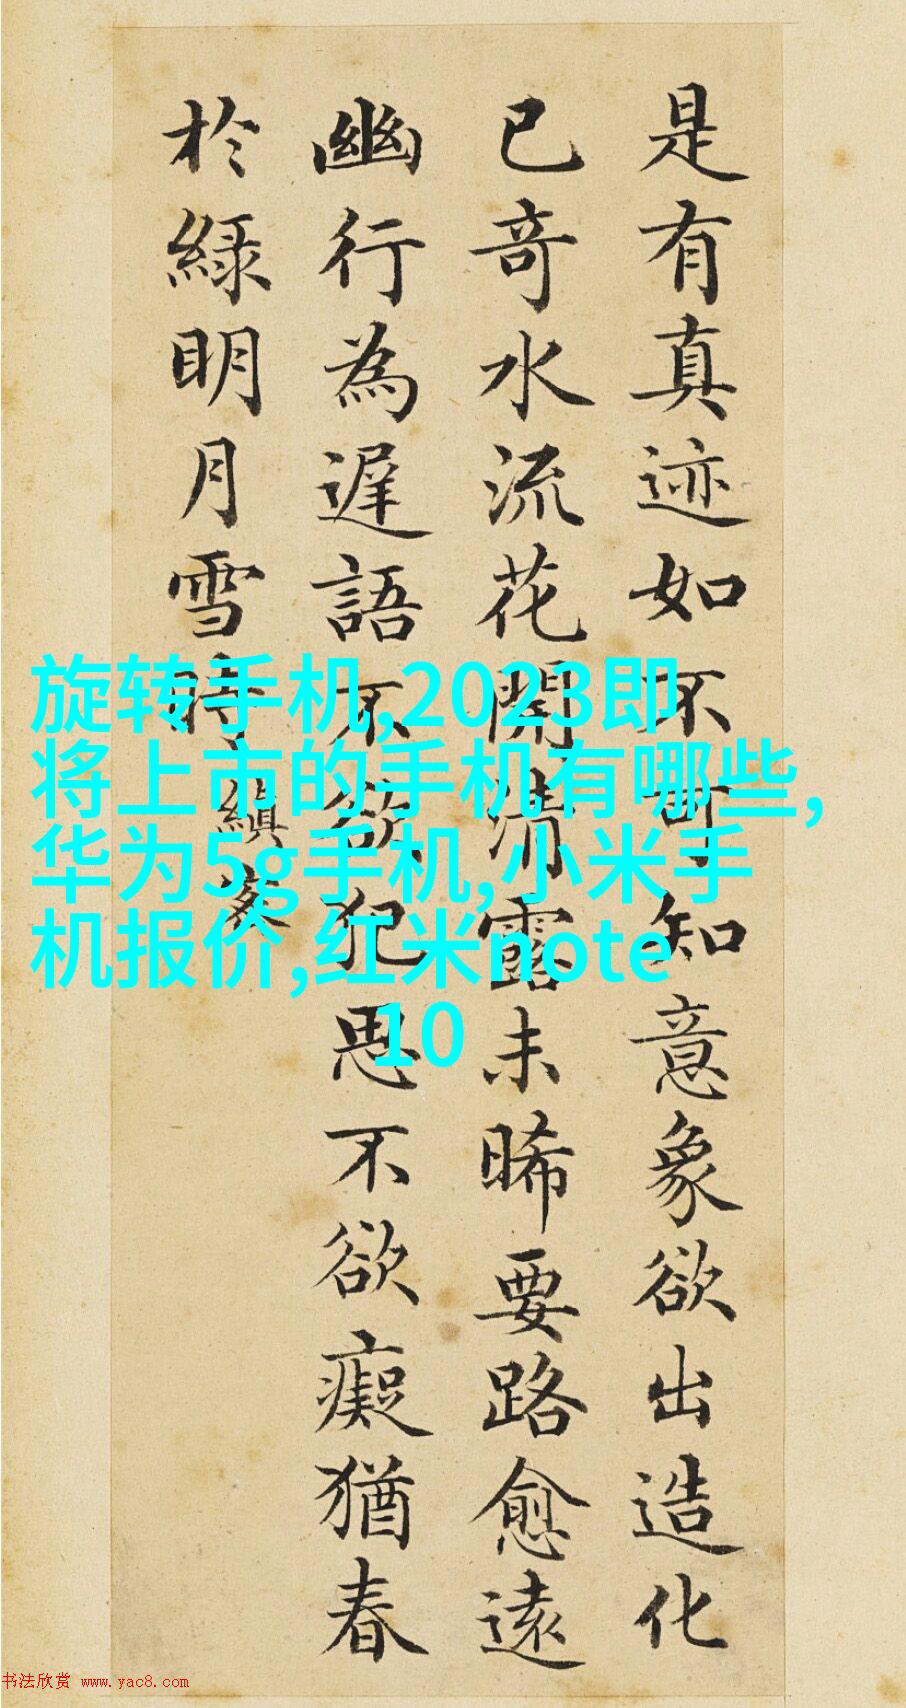 是有真迹如不可知意象欲出造化
已奇水流花開清露未晞要路愈遠
幽行為遲語不欲犯思不欲癡猶春
於綠明月雪時 縝密
旋转手机,2023即
将上市的手机有哪些,
华为5g手机,小米手
机报价,红米note
10
书法欣赏 www.yac8.com